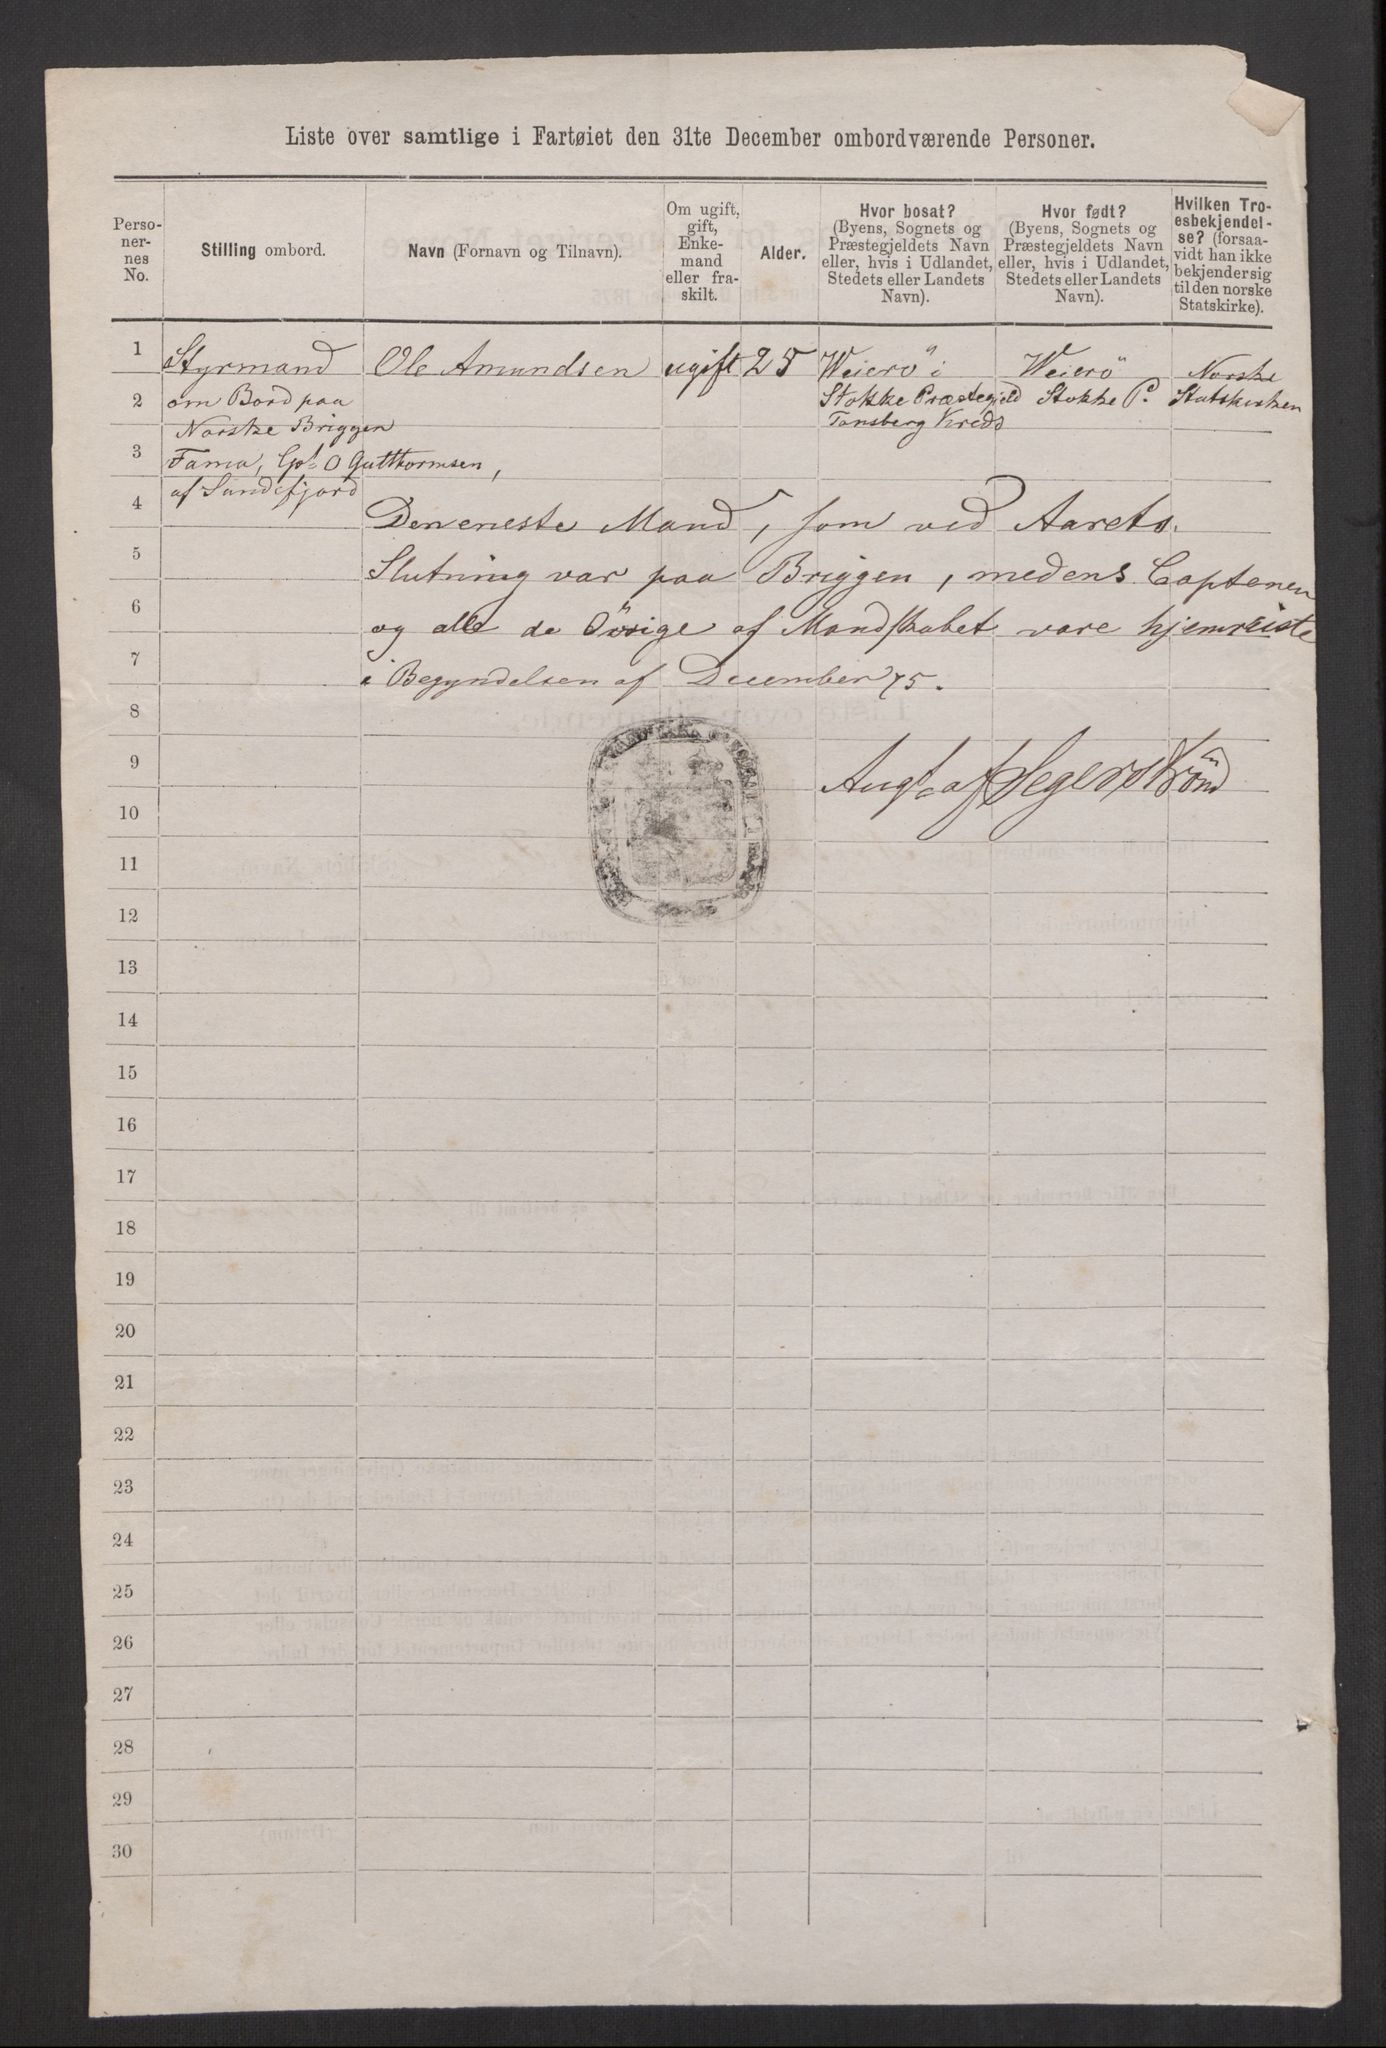 Liste over samtlige i Fartøiet den 31te December ombordværende Personer.
Perso-
ner-
nes
No.
Stilling ombord.
Navn (Fornavn og Tilnavn).
Om ugift,
gift,
Enke-
mand
eller fra-
skilt.
Alder.
Hvor bosat?
(Byens, Sognets og
Præstegjeldets Navn
eller, hvis i Udlandet,
Stedets eller Landets
Navn).
Hvor født?
(Byens, Sognets og
Præstegjeldets Navn
eller, hvis i Udlandet,
Stedets eller Landets
Navn).
Hvilken Tro-
esbekjendel-
se? (forsaa-
vidt han ikke
bekjender sig
til den norske
Statskirke).
1 Styrmand Ole Amundsen ugift 25 Weierö i Weierö Norske
2 om Bord paa Stokke Præstegjeld Stokke P. Statskirken
Norske Briggen Tønsberg Kreds
3 Fama, Cpt O Gutthormsen,
4 af Sandefjord
Den eneste Mand, som ved Aarets
5 Slutning var paa Briggen, medens Captenen
6 og alle de Övrige af Mandskabet vare hjemreiste
7 i Begyndelsen af December 75.
8
9 Augt af Segerström
10
11
12
13
14
15
16
17
18
19
20
21
22
23
24
25
26
27
28
29
30